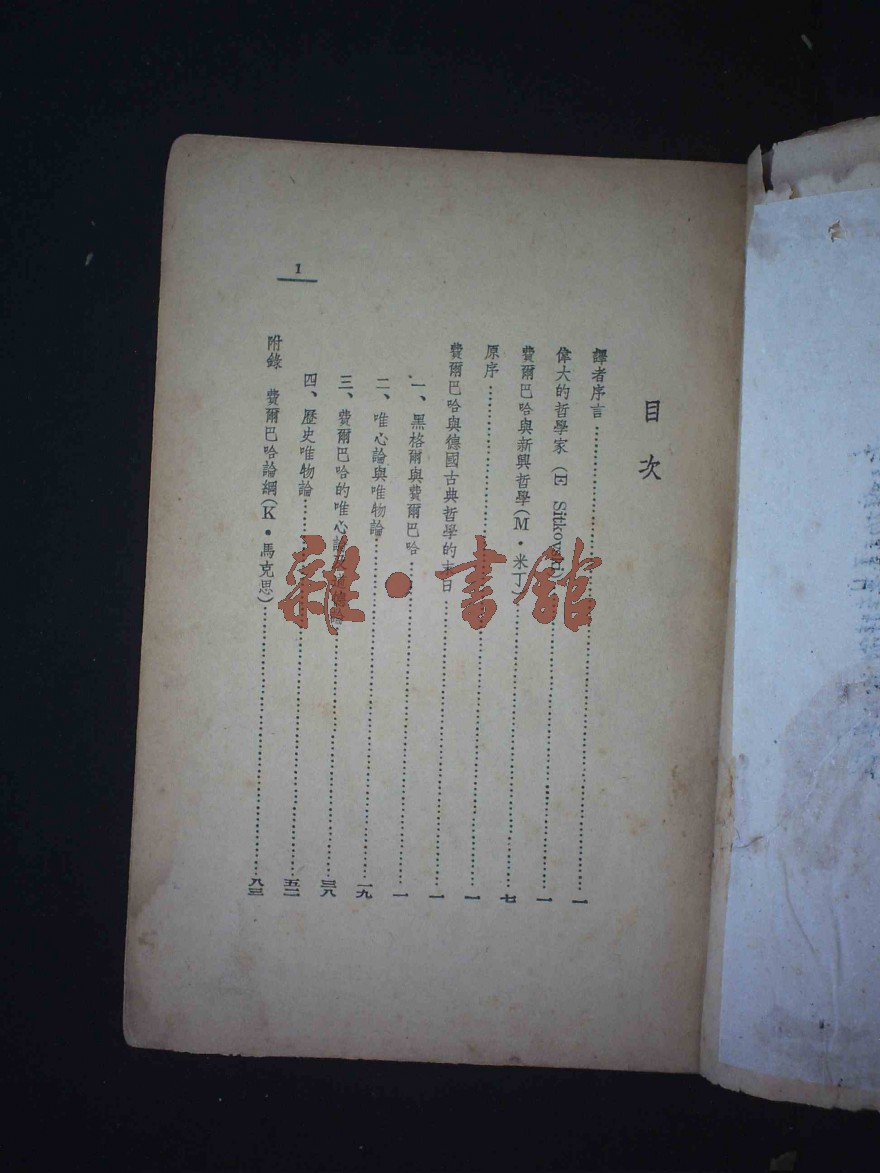 目次
譯者序言……一
偉大的哲學家（E Sitkovski）……一
費爾巴哈與新興哲學（M・米丁）……七
原序……一
費爾巴哈與德國古典哲學的末日……一
一、黑格爾與費爾巴哈……一
二、唯心論與唯物論……一九
三、費爾巴哈的唯心論及……三八
四、歷史唯物論……五二
附錄 費爾巴哈論綱（K・馬克思）……八三
1
雜・書館